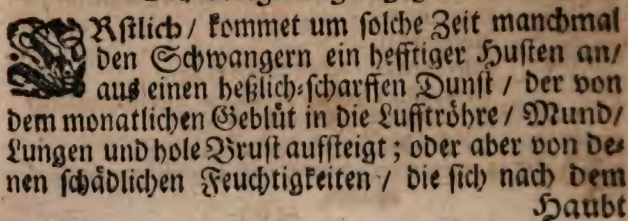 ERſtlich / kommet um ſolche Zeit manchmal
den Schwangern ein hefftiger Huſten an/
aus einen heßlich-ſcharffen Dunſt / der von
dem monatlichen Geblüt in die Lufftröhre / Mund/
Lungen und hole Bruſt aufſteigt ; oder aber von de-
nen ſchädlichen Feuchtigkeiten / die ſich nach dem
Haubt